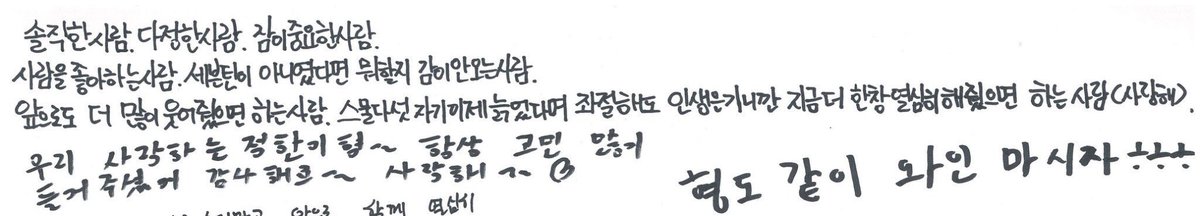 솔직한사람. 다정한사람. 잠이중요한사람.
사람을 좋아하는사람. 세븐틴이 아니였다면 뭐할지 감이안오는사람.
앞으로도 더 많이 웃어줬으면 하는사람. 스물다섯 자기이제늙었다며 좌절해도 인생은기니깐 지금더 한창 열심히해줬으면 하는 사람(사랑해).
우리 사랑하는 정한이 형~ 항상 고민 많이
들어 주셨어 감사해요~ 사랑해~
형도 같이 와인 마시자 ㅎㅎㅎ
함께 열심히